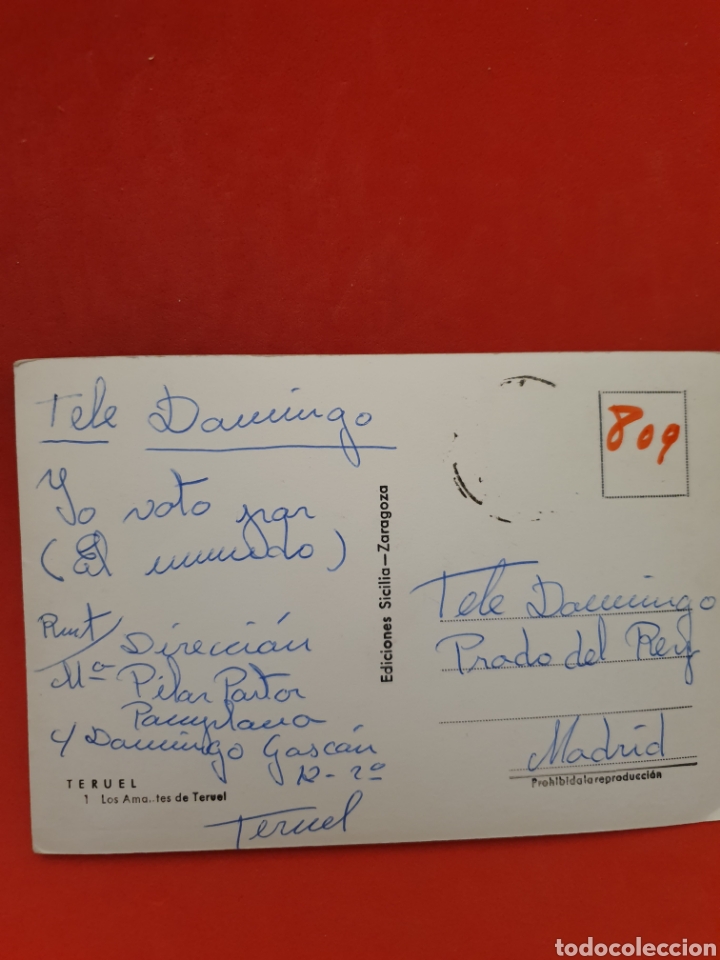 Tele Domingo
Yo voto por
(El mundo)
Rmt/ Dirección
Mª Pilar Pastor
Pamplona
c/ Domingo Gascón
12-2º
Teruel
TERUEL
1 Los Ama..tes de Teruel
Ediciones Sicilia-Zaragoza
809
Tele Domingo
Prado del Rey
Madrid
Prohibida la reproducción
todocoleccion